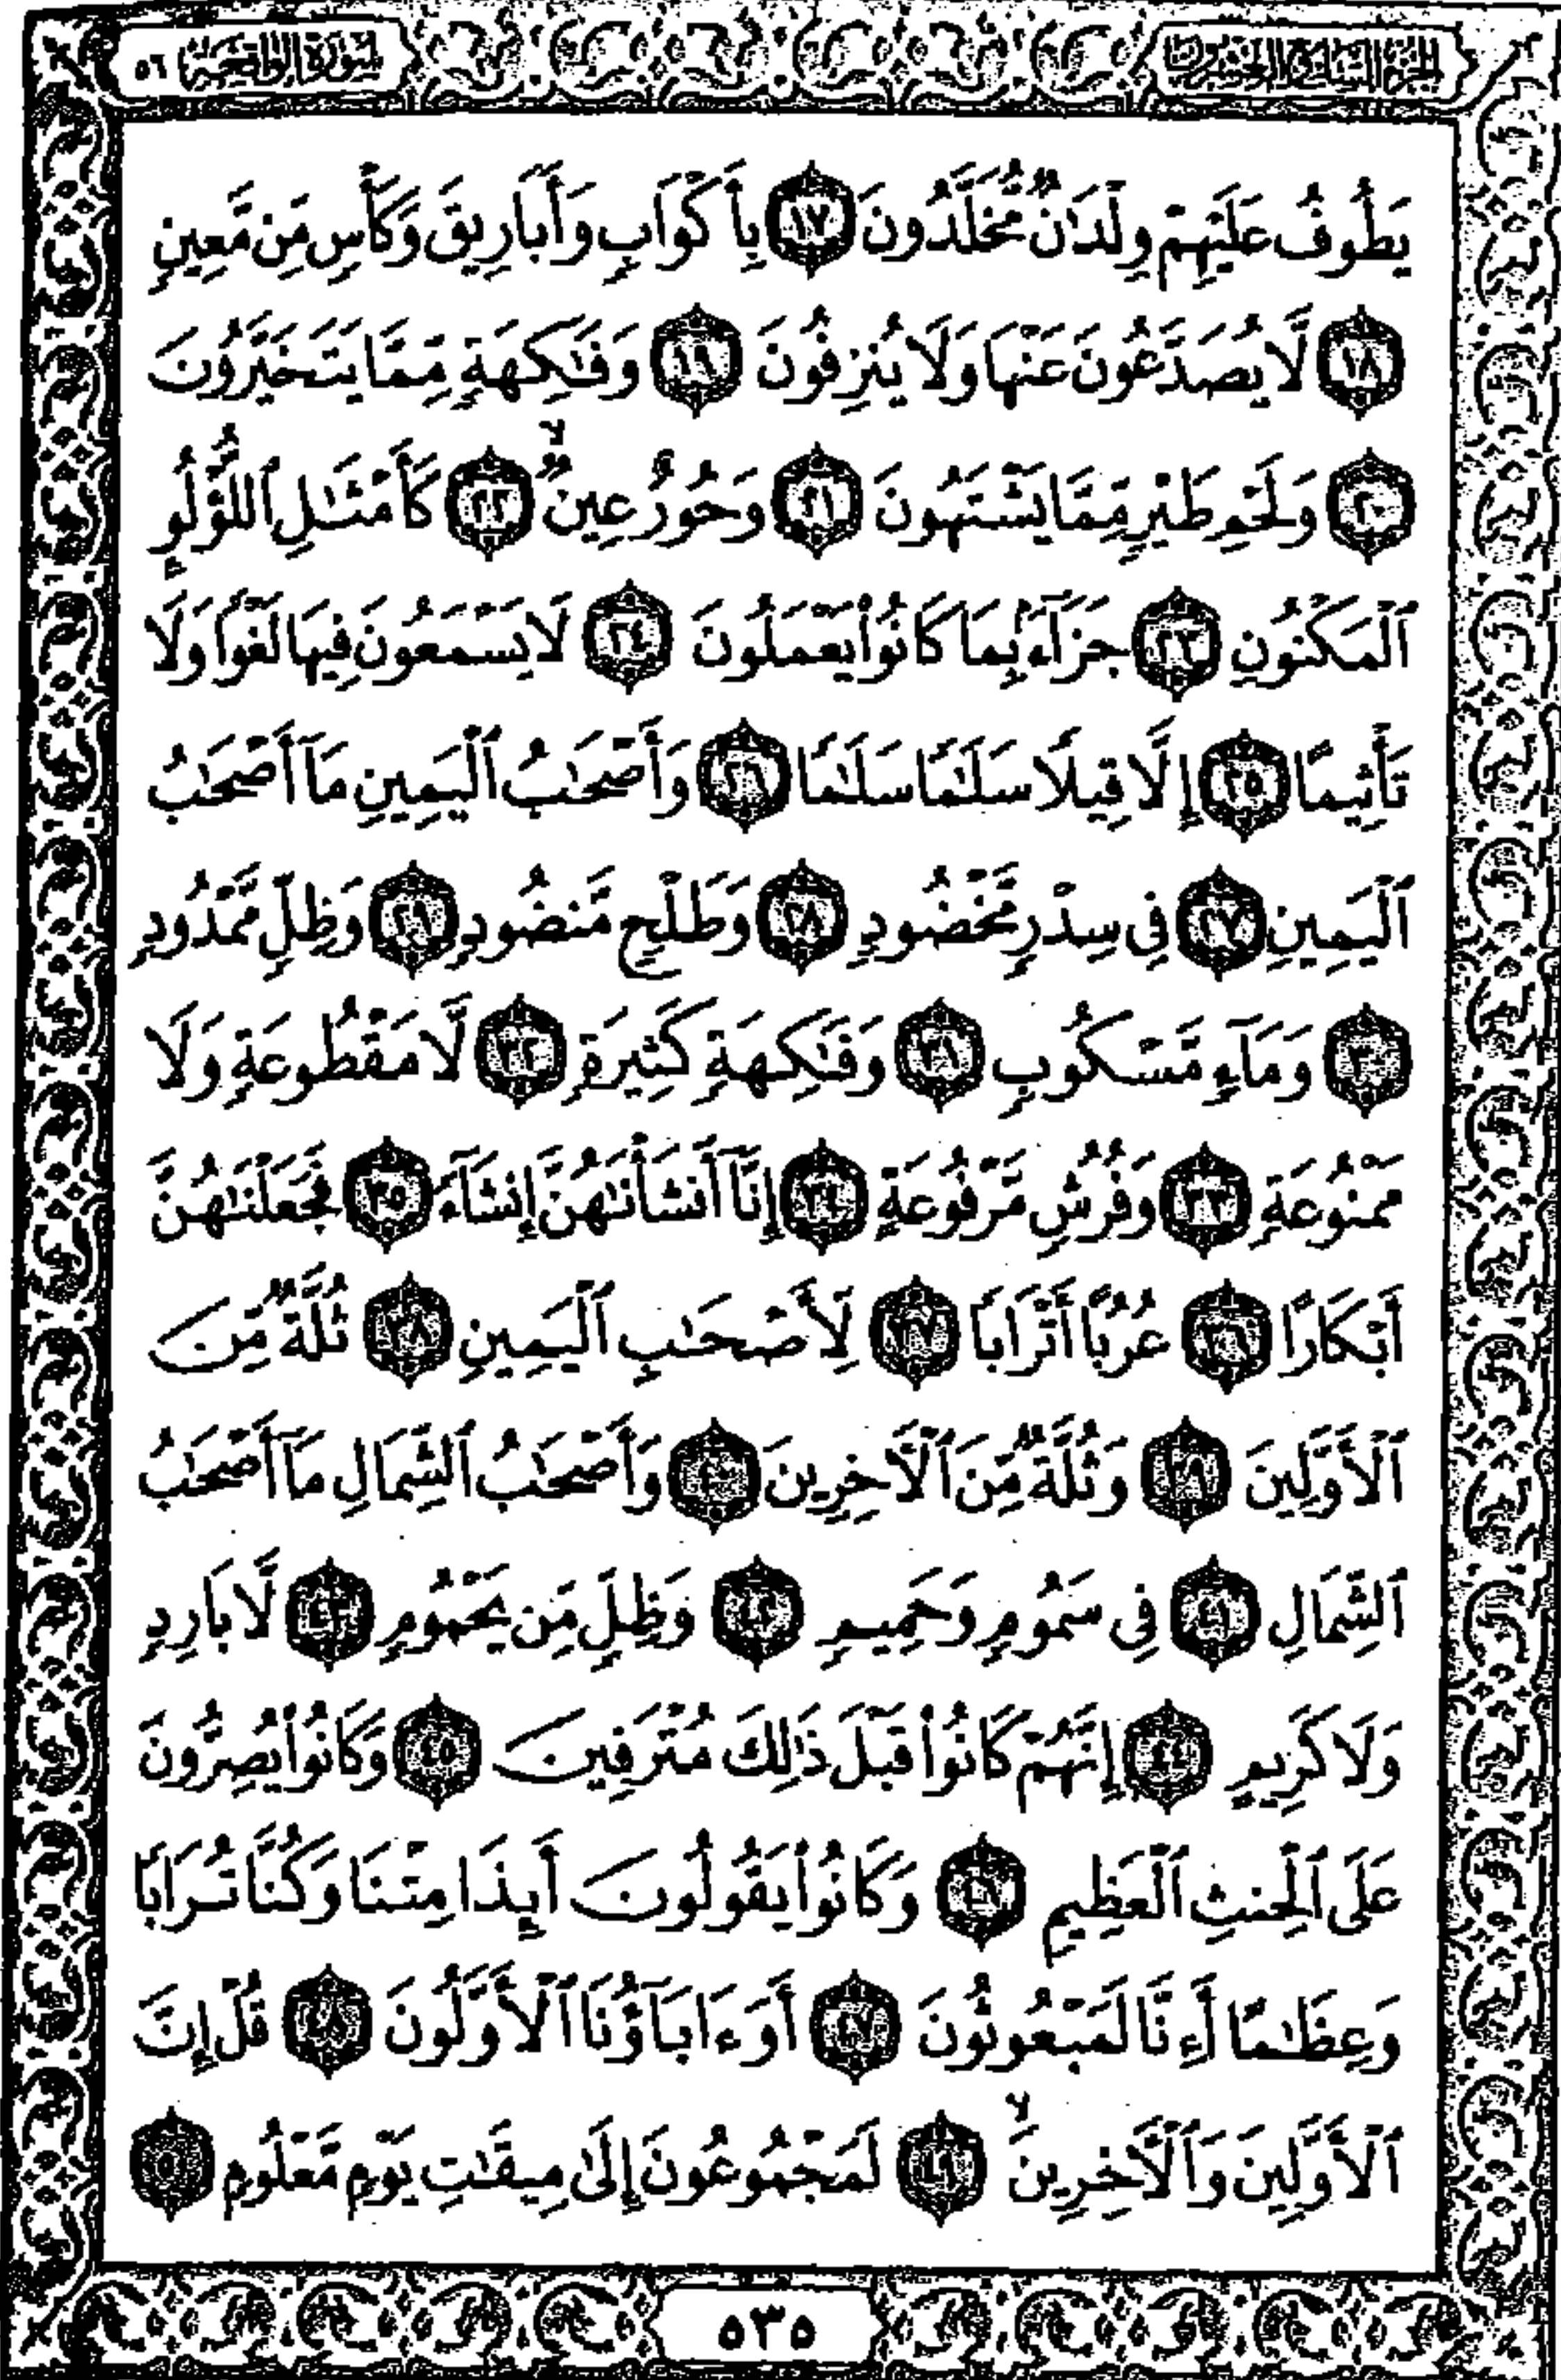 الجزء السابع والعشرون
سورة الواقعة ٥٦
يَطُوفُ عَلَيْهِمْ وِلْدَٰنٌ مُّخَلَّدُونَ ١٧ بِأَكْوَابٍ وَأَبَارِيقَ وَكَأْسٍ مِّن مَّعِينٍ
١٨ لَّا يُصَدَّعُونَ عَنْهَا وَلَا يُنزِفُونَ ١٩ وَفَـٰكِهَةٍ مِّمَّا يَتَخَيَّرُونَ
٢٠ وَلَحْمِ طَيْرٍ مِّمَّا يَشْتَهُونَ ٢١ وَحُورٌ عِينٌ ۙ ٢٢ كَأَمْثَـٰلِ ٱللُّؤْلُؤِ
ٱلْمَكْنُونِ ٢٣ جَزَآءًۢ بِمَا كَانُوا۟ يَعْمَلُونَ ٢٤ لَا يَسْمَعُونَ فِيهَا لَغْوًا وَلَا
تَأْثِيمًا ٢٥ إِلَّا قِيلًا سَلَـٰمًا سَلَـٰمًا ٢٦ وَأَصْحَـٰبُ ٱلْيَمِينِ مَآ أَصْحَـٰبُ
ٱلْيَمِينِ ٢٧ فِى سِدْرٍ مَّخْضُودٍ ٢٨ وَطَلْحٍ مَّنضُودٍ ٢٩ وَظِلٍّ مَّمْدُودٍ
٣٠ وَمَآءٍ مَّسْكُوبٍ ٣١ وَفَـٰكِهَةٍ كَثِيرَةٍ ٣٢ لَّا مَقْطُوعَةٍ وَلَا
مَمْنُوعَةٍ ٣٣ وَفُرُشٍ مَّرْفُوعَةٍ ٣٤ إِنَّآ أَنشَأْنَـٰهُنَّ إِنشَآءً ٣٥ فَجَعَلْنَـٰهُنَّ
أَبْكَارًا ٣٦ عُرُبًا أَتْرَابًا ٣٧ لِّأَصْحَـٰبِ ٱلْيَمِينِ ٣٨ ثُلَّةٌ مِّنَ
ٱلْأَوَّلِينَ ٣٩ وَثُلَّةٌ مِّنَ ٱلْـَٔاخِرِينَ ٤٠ وَأَصْحَـٰبُ ٱلشِّمَالِ مَآ أَصْحَـٰبُ
ٱلشِّمَالِ ٤١ فِى سَمُومٍ وَحَمِيمٍ ٤٢ وَظِلٍّ مِّن يَحْمُومٍ ٤٣ لَّا بَارِدٍ
وَلَا كَرِيمٍ ٤٤ إِنَّهُمْ كَانُوا۟ قَبْلَ ذَٰلِكَ مُتْرَفِينَ ٤٥ وَكَانُوا۟ يُصِرُّونَ
عَلَى ٱلْحِنثِ ٱلْعَظِيمِ ٤٦ وَكَانُوا۟ يَقُولُونَ أَئِذَا مِتْنَا وَكُنَّا تُرَابًا
وَعِظَـٰمًا أَءِنَّا لَمَبْعُوثُونَ ٤٧ أَوَءَابَآؤُنَا ٱلْأَوَّلُونَ ٤٨ قُلْ إِنَّ
ٱلْأَوَّلِينَ وَٱلْـَٔاخِرِينَ ۙ ٤٩ لَمَجْمُوعُونَ إِلَىٰ مِيقَـٰتِ يَوْمٍ مَّعْلُومٍ ٥٠
٥٣٥